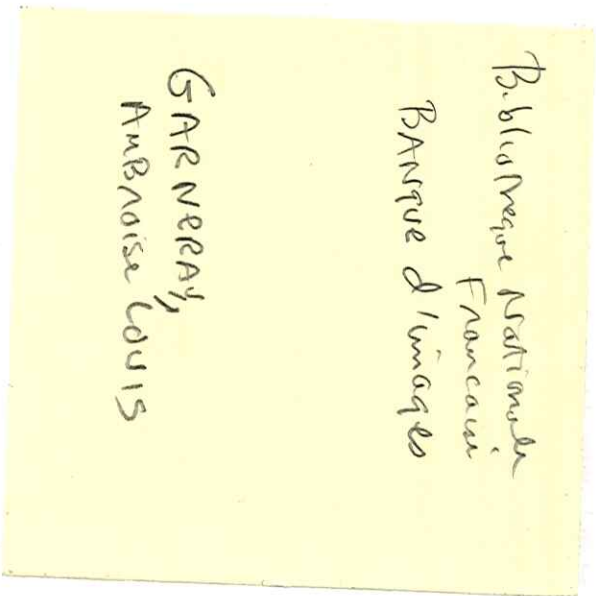 Bibliotheque Nationale
Francaise
BANque d'images
GARNERAY,
AMBROise LOUIS